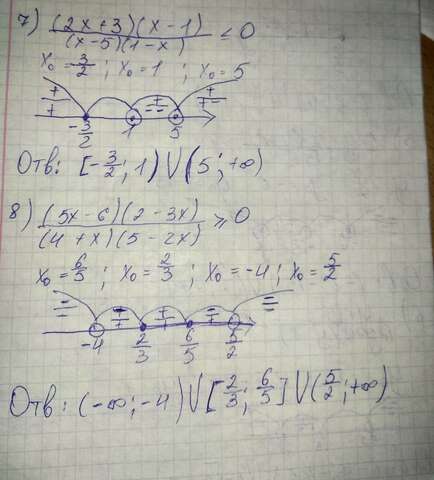 7) (2x+3)(x-1) / (x-5)(1-x) ≤ 0
x₀ = -3/2 ; x₀ = 1 ; x₀ = 5
-3/2 1 5
Отв: [-3/2; 1) ∪ (5; +∞)
8) (5x-6)(2-3x) / (4+x)(5-2x) ≥ 0
x₀ = 6/5 ; x₀ = 2/3 ; x₀ = -4 ; x₀ = 5/2
-4 2/3 6/5 5/2
Отв: (-∞; -4) ∪ [2/3; 6/5] ∪ (5/2; +∞)